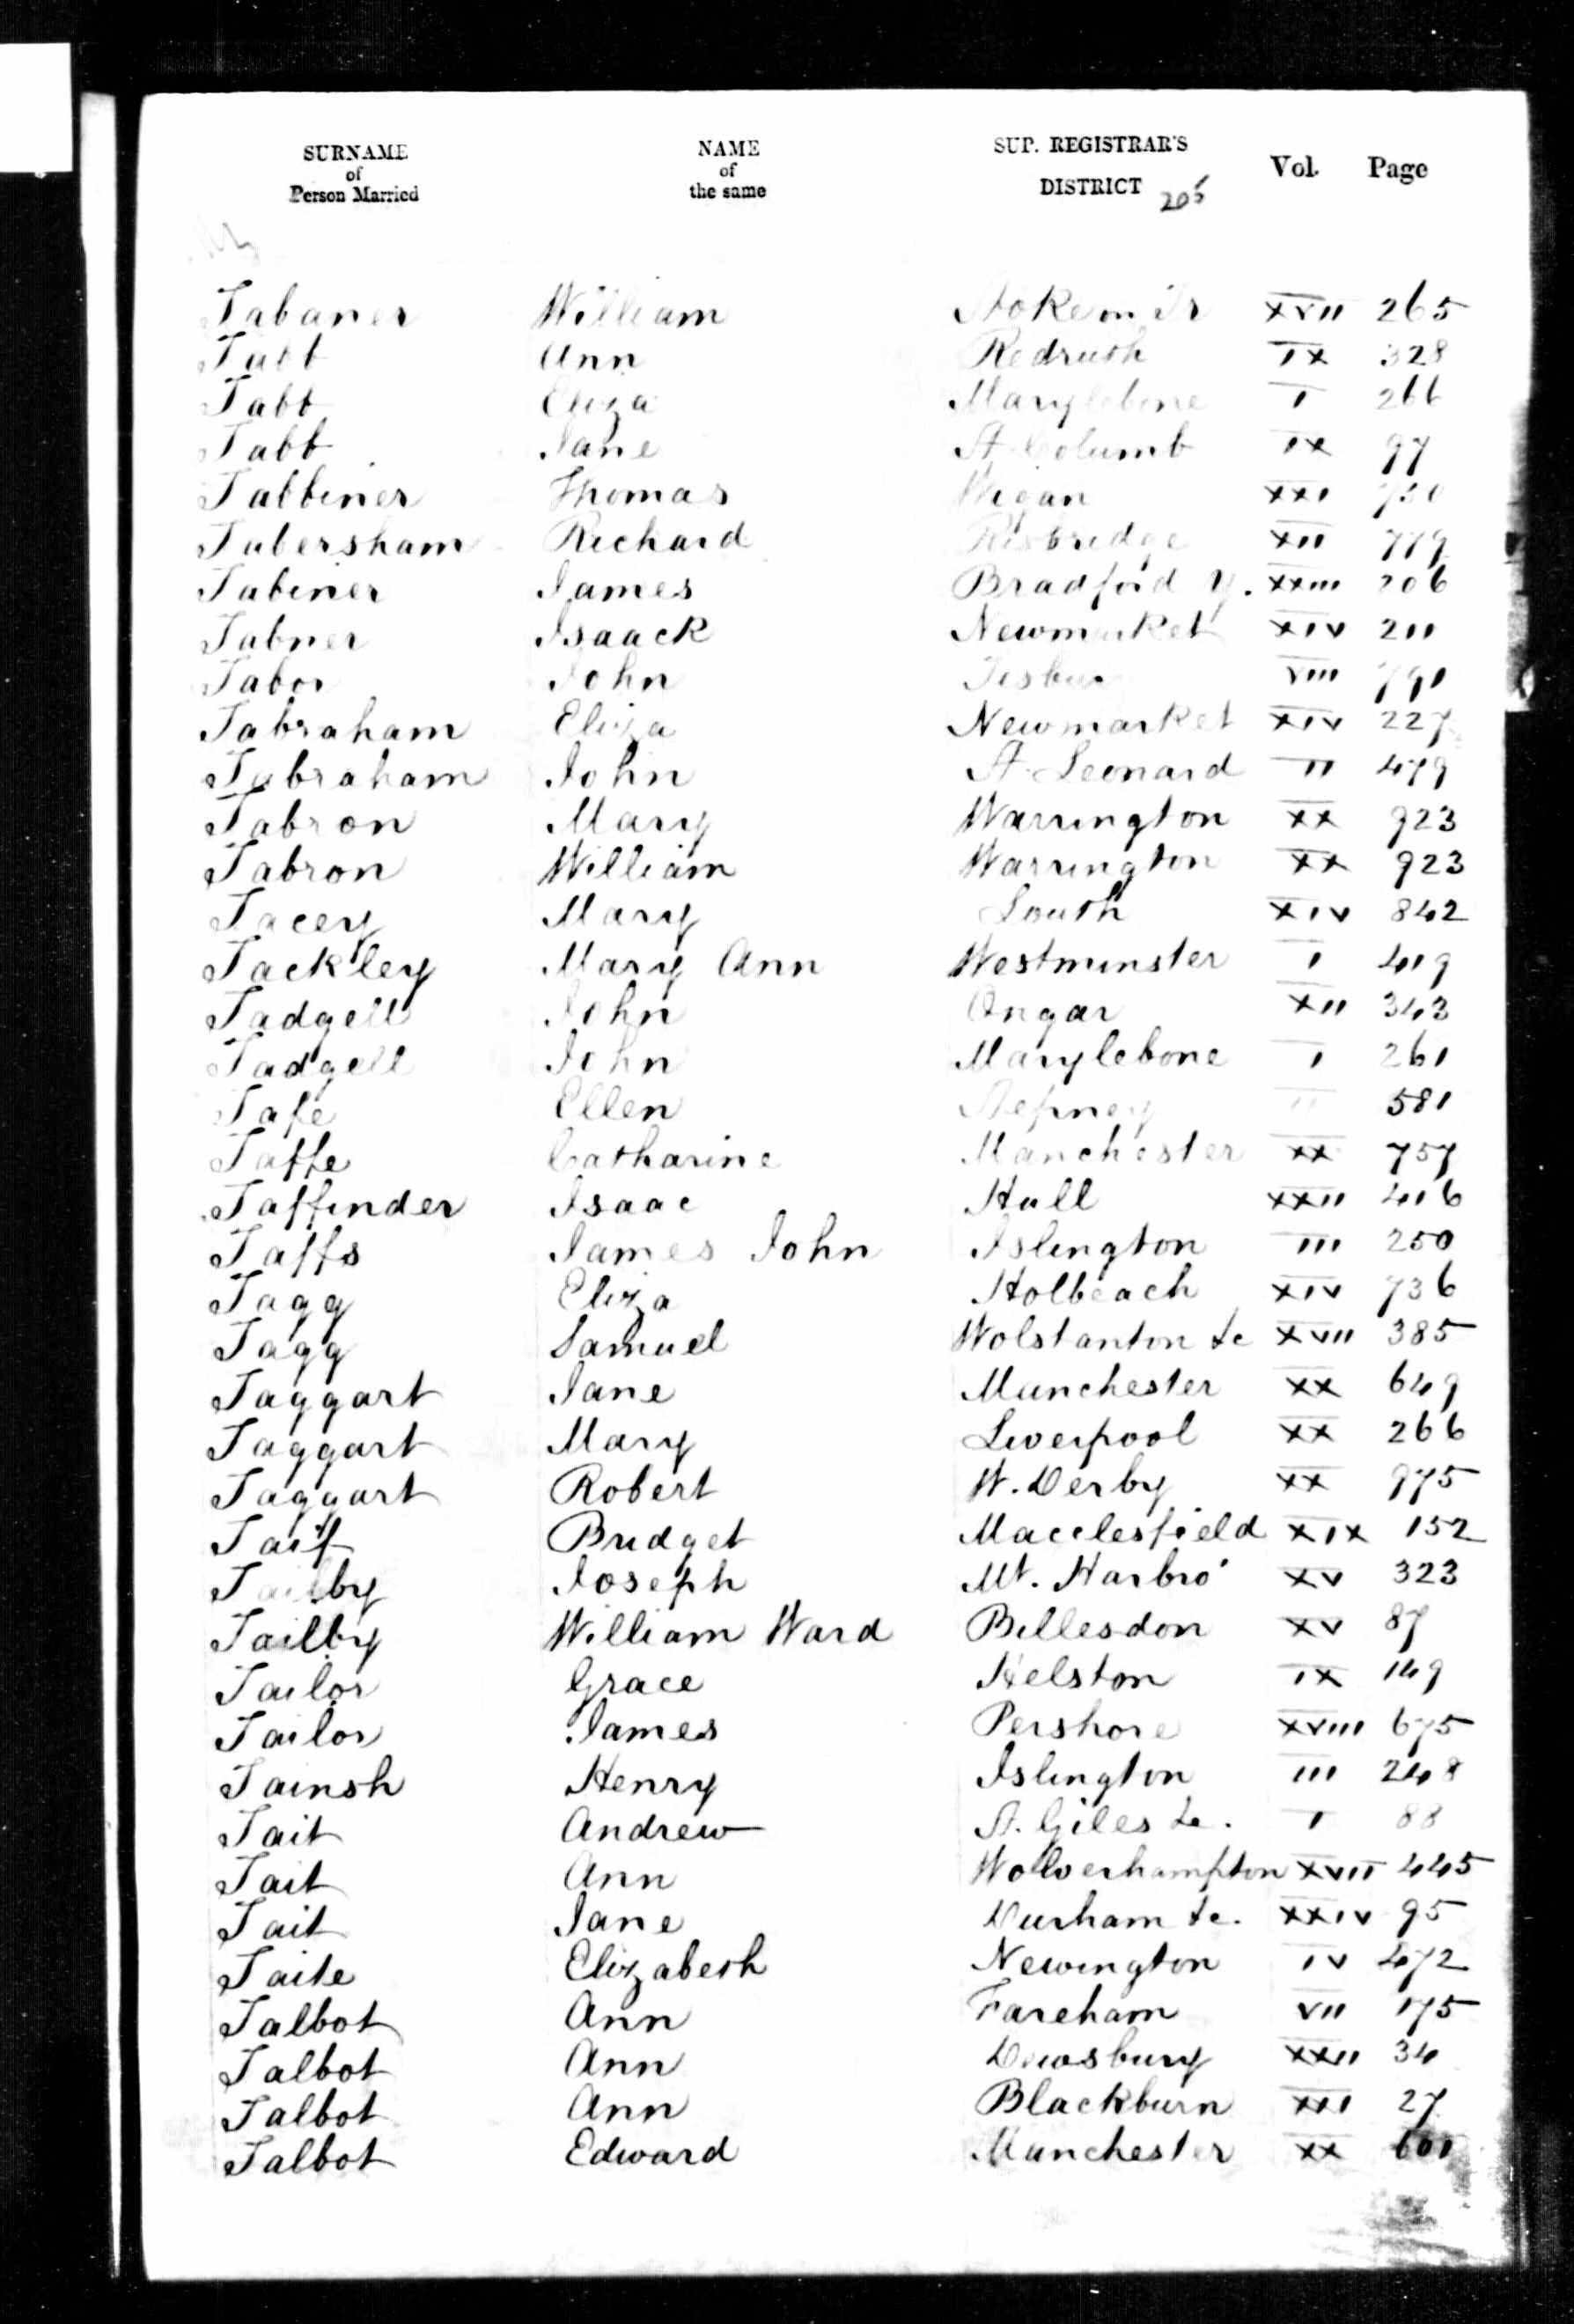 SURNAME of Person Married NAME of the same SUP. REGISTRAR'S DISTRICT Vol. Page
205
Tabaner William Stoke on Tr XVII 265
Tabb Ann Redruth IX 328
Tabb Eliza Marylebone I 266
Tabb Jane St Columb IX 97
Tabbiner Thomas Wigan XXI
Tabersham Richard Risbridge XII 779
Tabiner James Bradford Y. XXIII 206
Tabner Isaack Newmarket XIV 211
Tabor John Tisbury VIII 791
Tabraham Eliza Newmarket XIV 227
Tabraham John St. Leonard II 479
Tabron Mary Warrington XX 923
Tabron William Warrington XX 923
Tacey Mary Louth XIV 842
Tackley Mary Ann Westminster I 419
Tadgell John Ongar XII 343
Tadgell John Marylebone I 261
Tafe Ellen Stepney II 581
Taffe Catharine Manchester XX 757
Taffinder Isaac Hull XXII 416
Taffs James John Islington III 250
Tagg Eliza Holbeach XIV 736
Tagg Samuel Wolstanton &c XVII 385
Taggart Jane Manchester XX 649
Taggart Mary Liverpool XX 266
Taggart Robert W. Derby XX 975
Taif Bridget Macclesfield XIX 152
Joseph Mt. Harbro' XV 323
Tailby William Ward Billesdon XV 87
Tailor Grace Helston IX 149
Tailor James Pershore XVIII 675
Tainsh Henry Islington III 248
Tait Andrew St. Giles &c. I 88
Tait Ann Wolverhampton XVII 445
Tait Jane Durham &c. XXIV 95
Taite Elizabeth Newington IV 472
Talbot Ann Fareham VII 175
Talbot Ann Dewsbury XXII 34
Talbot Ann Blackburn XXI 27
Talbot Edward Manchester XX 601